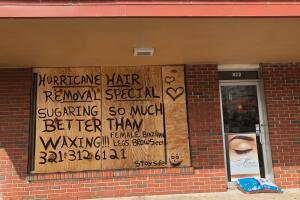 HURRICANE HAIR
REMOVAL SPECIAL
SUGARING SO MUCH
BETTER THAN
WAXING!!!
FEMALE BRAZILIAN
LEGS BROWS
321·312·6121
STAY SAFE
822